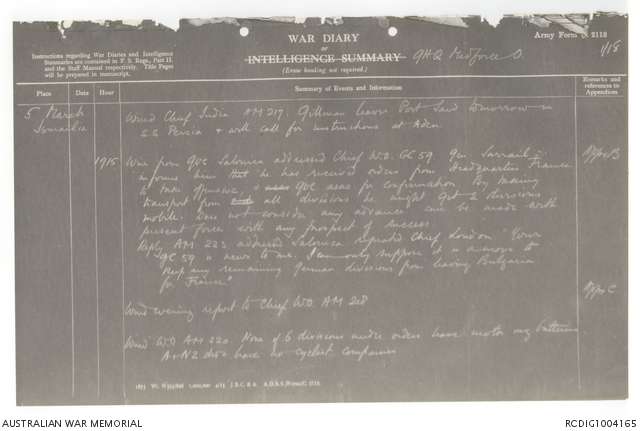 Army Form C. 2118
WAR DIARY
or
INTELLIGENCE SUMMARY
(Erase heading not required.)
GHQ Medforce O.
1/18
Instructions regarding War Diaries and Intelligence
Summaries are contained in F. S. Regs., Part II.
and the Staff Manual respectively. Title Pages
will be prepared in manuscript.
Place Date Hour Summary of Events and Information Remarks and references to Appendices
5 March
Ismailia
Wired Chief India AM 217. Gillman leaves Port Said tomorrow in
S.S. Persia + will call for instructions at Aden
1915
Wire from GOC Salonica addressed Chief W.O. GC 59. Gen. Sarrail
informs him that he has received orders from Headquarters France
to take offensive, + GOC asks for confirmation. By making
transport from all divisions he might get 2 divisions
mobile. Does not consider any advance can be made with
present force with any prospect of success
Appx B
Reply AM 223 addressed Salonica repeated Chief London "Your
GC 59 is news to me. I can only suppose it is a move to
keep any remaining German divisions from leaving Bulgaria
for France"
Appx C
Wired evening report to Chief W.O. AM 218
Wired W.O. AM 220. None of 6 divisions under orders have motor mg batteries
A+NZ divs have no cyclist companies
AUSTRALIAN WAR MEMORIAL
RCDIG1004165